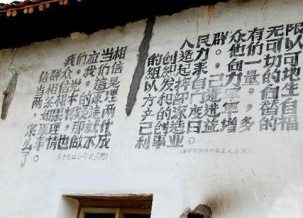 我们应当相
信群众,我们应当相信
党,这是
两条根本的原理
。如果怀疑这两
条原理,那就什
么事情也做不成
了。
人民群众有无限
的创造力。他们可以
组织起来,向一切可
以发挥自己力量的地
方和部门进军,向生
产的深度进军,替自
己创造日益增多的福
利事业。